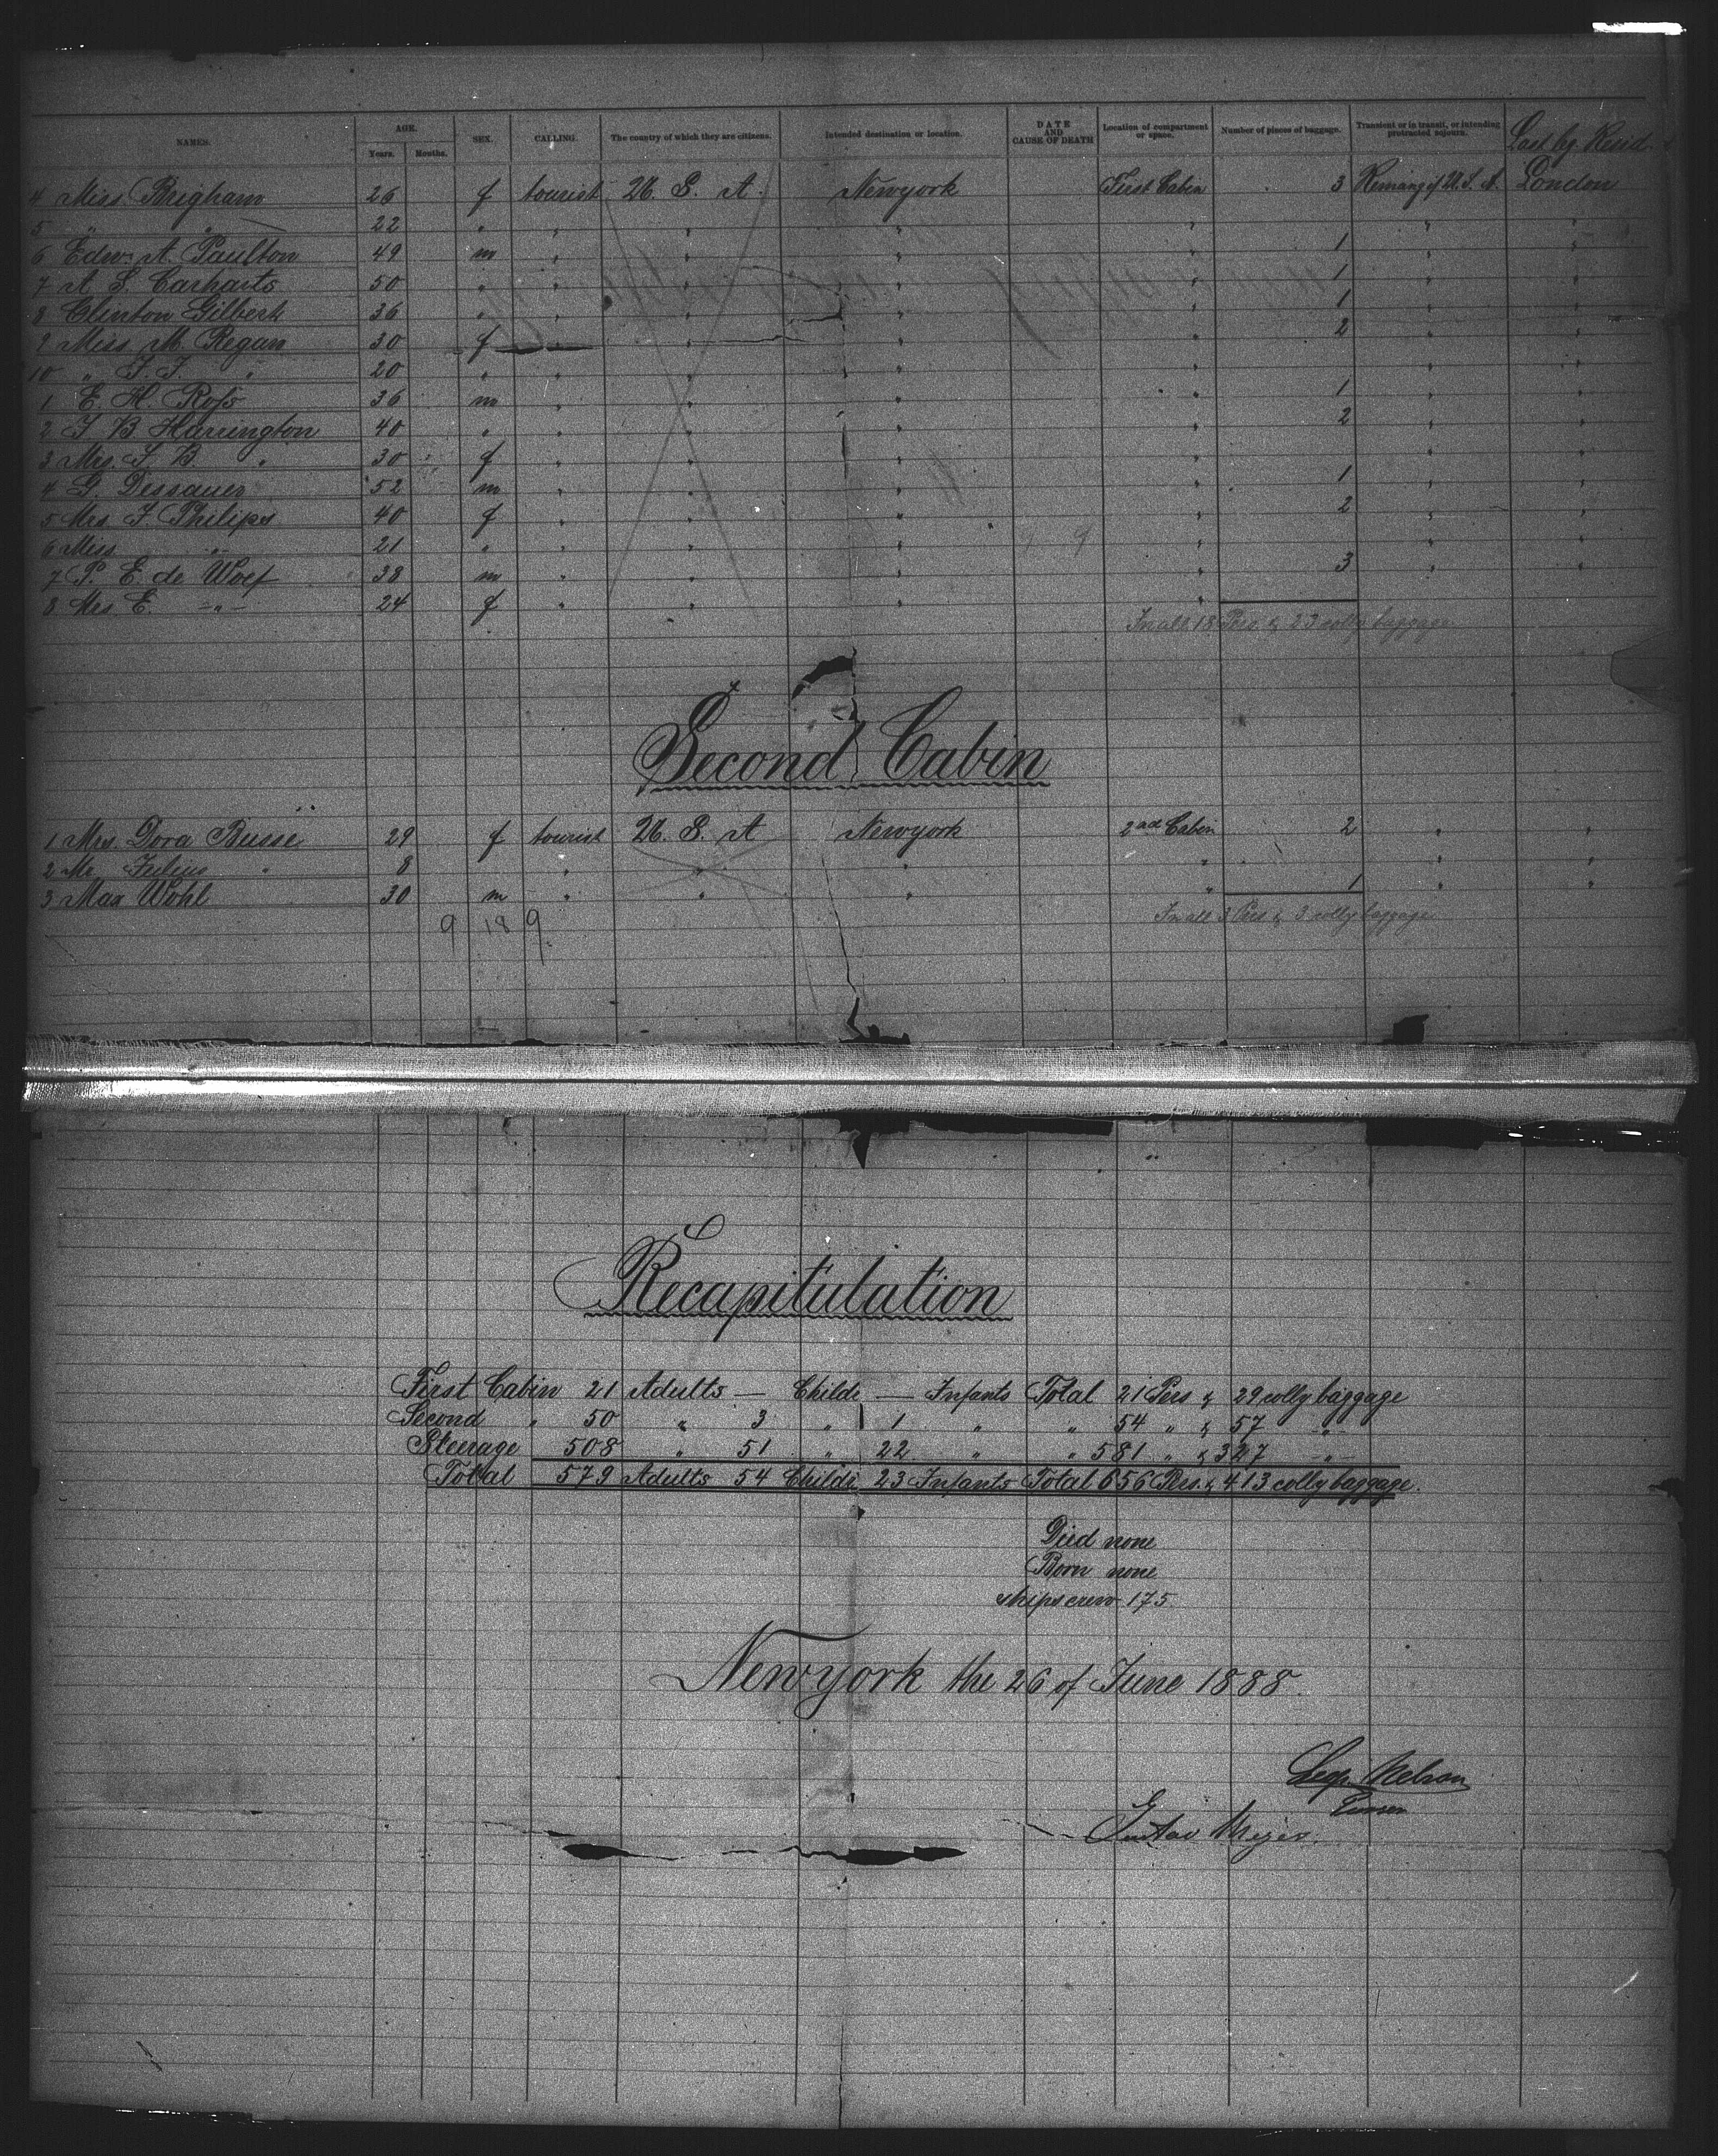 NAMES. AGE. Years. Months. SEX. CALLING. The country of which they are citizens. Intended destination or location. DATE AND CAUSE OF DEATH Location of compartment or space. Number of pieces of baggage. Transient or in transit, or intending protracted sojourn. Last
4 Miss Brigham 26 f tourist U. S. A. Newyork First Cabin 3 U. S. A. London
5 " " 22 " " " " " " "
6 Edw. A. Paulton 49 m " " " " 1 " "
7 A S. Carharts 50 " " " " " 1 " "
8 Clinton Gilbert 36 " " " " " 1 " "
9 Miss M. Regan 30 f " " " " 2 " "
10 " " 20 " " " " " " "
1 E. H. Roſs 36 m " " " " 1 " "
2 J B Harrington 40 " " " " " 2 " "
3 Mrs. J. B. " 30 f " " " " " "
4 G. Dessauer 52 m " " " " 1 " "
5 Mrs J. Philips 40 f " " " " 2 " "
6 Miss " 21 " " " " " " "
7 P. E. de Woef 38 m " " " " 3 " "
8 Mrs E. -"- 24 f " " " "
In all 18 Pers. & 23 colly baggage
Second Cabin
1 Mrs. Dora Busse 29 f tourist U. S. A Newyork 2nd Cabin 2 " "
2 Mr. Julius " 8 " " " " " "
3 Max Wohl 30 m " " " " 1 " "
9 18 9
In all 3 Pers & 3 colly baggage
Recapitulation
First Cabin 21 Adults — Childr — Infants Total 21 Pers & 29 colly baggage
Second " 50 " 3 " 1 " " 54 " & 57 -"-
Steerage 508 " 51 " 22 " " 581 " & 327 -"-
Total 579 Adults 54 Childr 23 Infants Total 656 Pers. & 413 colly baggage.
Died none
Born none
ships crew 175
Newyork the 26 of June 1888.
Nelson
Purser
Gustav Meyer